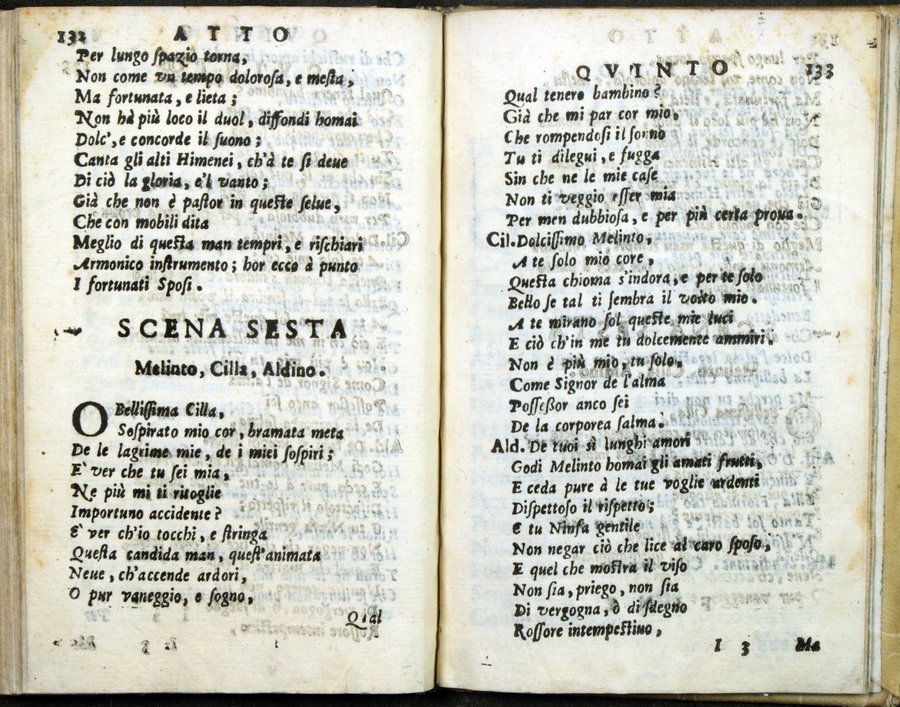 132 ATTO
Per lungo ſpazio torna,
Non come vn tempo dolorosa, e meſta,
Ma fortunata, e lieta;
Non hà più loco il duol, diffondi homai
Dolc', e concorde il ſuono;
Canta gli alti Himenei, ch'à te ſi deue
Di ciò la gloria, e'l vanto;
Già che non è paſtor in queſte ſelue,
Che con mobili dita
Meglio di queſta man tempri, e riſchiari
Armonico inſtrumento; hor ecco à punto
I fortunati Sposi.
SCENA SESTA
Melinto, Cilla, Aldino.
O Belliſſima Cilla,
Soſpirato mio cor, bramata meta
De le lagrime mie, de i miei ſoſpiri;
E' ver che tu ſei mia,
Ne più mi ti ritoglie
Importuno accidente?
E' ver ch'io tocchi, e ſtringa
Queſta candida man, queſt'animata
Neue, ch'accende ardori,
O pur vaneggio, e ſogno,
Qual
QVINTO 133
Qual tenero bambino?
Già che mi par cor mio,
Che rompendoſi il ſonno
Tu ti dilegui, e fugga
Sin che ne le mie caſe
Non ti veggio eſſer mia
Per men dubbiosa, e per più certa proua.
Cil. Dolciſſimo Melinto,
A te ſolo mio core,
Queſta chioma s'indora, e per te ſolo
Bello ſe tal ti ſembra il volto mio.
A te mirano ſol queſte mie luci
E ciò ch'in me tu dolcemente ammiri.
Non è più mio, tu ſolo,
Come Signor de l'alma
Poſſeſſor anco ſei
De la corporea ſalma.
Ald. De tuoi sì lunghi amori
Godi Melinto homai gli amati frutti,
E ceda pure à le tue voglie ardenti
Diſpettoso il riſpetto;
E tu Ninfa gentile
Non negar ciò che lice al caro ſposo,
E quel che moſtra il viso
Non sia, priego, non sia
Di vergogna, ò di ſdegno
Roſſore intempeſtiuo,
I 3 Ma